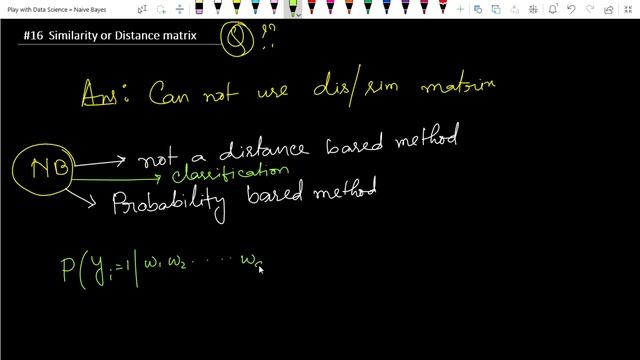 Play with Data Science » Naive Bayes
#16 Similarity or Distance matrix
Q !?
Ans: Can not use dis/sim matrix
NB
not a distance based method
classification
Probability based method
P(y_i=1|w_1 w_2 ..... w_d